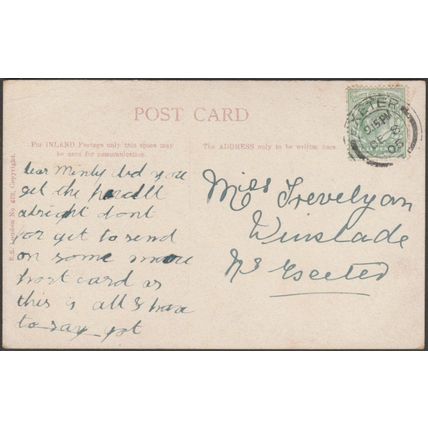 POST CARD
For INLAND Postage only this space may
be used for communication.
The ADDRESS only to be written here.
EXETER
9.15 PM
06
dear Minty did you
get the
alright dont
for get to send
on some more
post card as
this is all I have
to say yet
Miss Trevelyan
Winslade
Nr Exeter